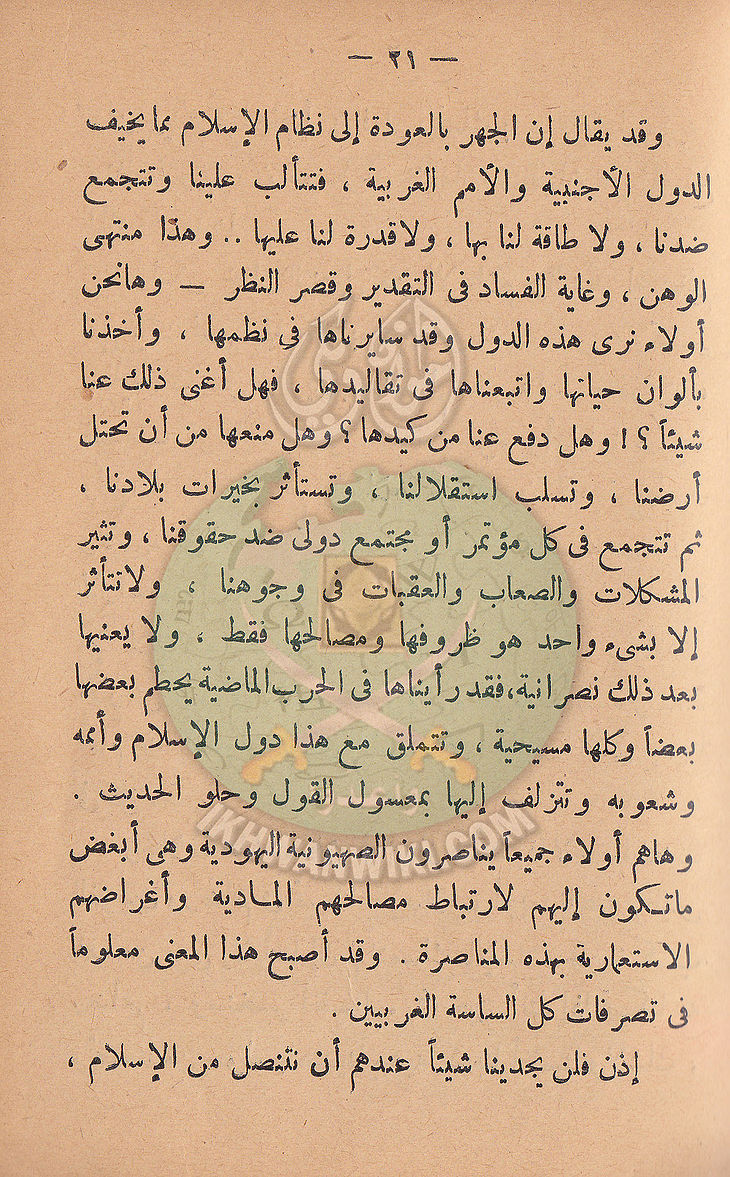 — ٣١ —
وقد يقال إن الجهر بالعودة إلى نظام الإسلام مما يخيف
الدول الأجنبية والأمم الغربية ، فتتألب علينا وتتجمع
ضدنا ، ولا طاقة لنا بها ، ولا قدرة لنا عليها .. وهذا منتهى
الوهن ، وغاية الفساد فى التقدير وقصر النظر — وهانحن
أولاء نرى هذه الدول وقد سايرناها فى نظمها ، وأخذنا
بألوان حياتها واتبعناها فى تقاليدها ، فهل أغنى ذلك عنا
شيئاً ؟ ! وهل دفع عنا من كيدها ؟ وهل منعها من أن تحتل
أرضنا ، وتسلب استقلالنا ، وتستأثر بخيرات بلادنا ،
ثم تتجمع فى كل مؤتمر أو مجتمع دولى ضد حقوقنا ، وتثير
المشكلات والصعاب والعقبات فى وجوهنا ، ولا تتأثر
إلا بشىء واحد هو ظروفها ومصالحها فقط ، ولا يعنيها
بعد ذلك نصرانية، فقد رأيناها فى الحرب الماضية يحطم بعضها
بعضاً وكلها مسيحية ، وتتملق مع هذا دول الإسلام وأممه
وشعوبه وتتزلف إليها بمعسول القول وحلو الحديث .
وهاهم أولاء جميعاً يناصرون الصهيونية اليهودية وهى أبغض
ماتكون إليهم لارتباط مصالحهم المادية وأغراضهم
الاستعمارية بهذه المناصرة . وقد أصبح هذا المعنى معلوماً
فى تصرفات كل الساسة الغربيين .
إذن فلن يجدينا شيئاً عندهم أن نتنصل من الإسلام ،
IKHWANWIKI.COM